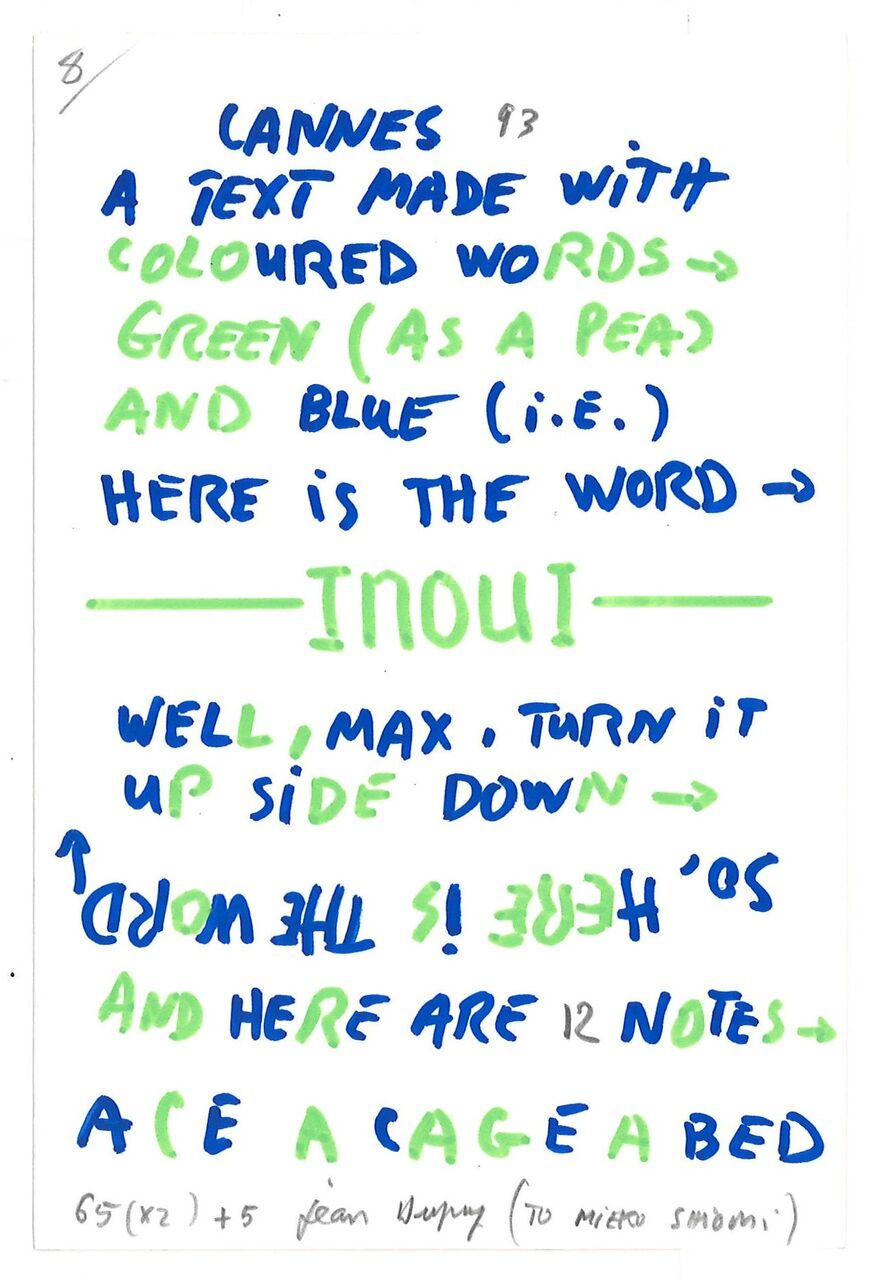 8/
CANNES 93
A TEXT MADE WITH
COLOURED WORDS →
GREEN (AS A PEA)
AND BLUE (i.E.)
HERE iS THE WORD →
InouI
WELL, MAX, TURN iT
UP SiDE DOWN →
SO, HERE iS THE WORD →
AND HERE ARE 12 NOTES →
ACE A CAGE A BED
65(x2) + 5 Jean Dupuy (TO MIEKO SHIOMI)